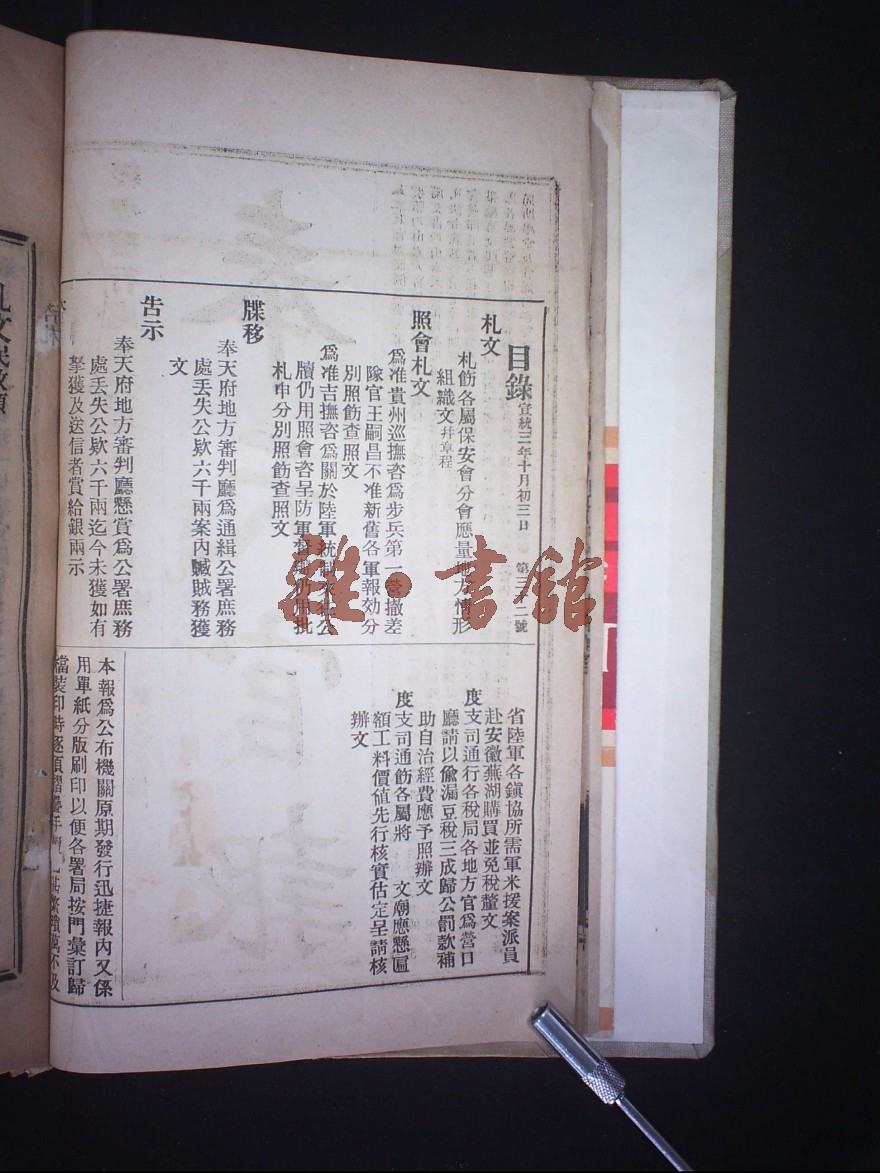 目錄 宣統三年十月初三日 第三十二號
札文
札飭各屬保安會分會應量地方情形
組織文幷章程
照會札文
爲准貴州巡撫咨爲步兵第一營撤差
隊官王嗣昌不准新舊各軍報効分
別照飭查照文
爲准吉撫咨爲關於陸軍統制來往公
牘仍用照會咨呈防軍督辦仍用批
札申分別照飭查照文
牒移
奉天府地方審判廳爲通緝公署庶務
處丟失公欵六千兩案內贓賊務獲
文
告示
奉天府地方審判廳懸賞爲公署庶務
處丟失公欵六千兩迄今未獲如有
拏獲及送信者賞給銀兩示
省陸軍各鎭協所需軍米援案派員
赴安徽蕪湖購買並免稅釐文
度支司通行各稅局各地方官爲營口
廳請以偸漏豆稅三成歸公罰款補
助自治經費應予照辦文
度支司通飭各屬將 文廟應懸匾
額工料價値先行核實估定呈請核
辦文
本報爲公布機關原期發行迅捷報內又係
用單紙分版刷印以便各署局按門彙訂歸
檔裝印時逐頁摺疊
札文民政類
雜·書館